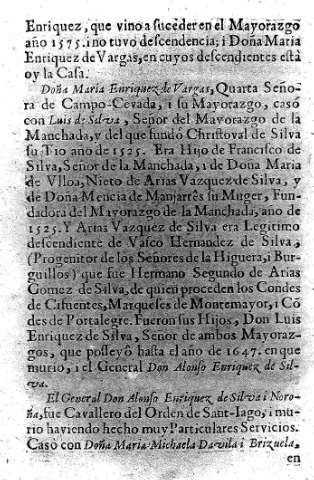 Enriquez, que vino a suceder en el Mayorazgo
año 1575. i no tuvo descendencia; i Doña Maria
Enriquez de Vargas, en cuyos descendientes está
oy la Casa.
Doña Maria Enriquez de Vargas, Quarta Seño-
ra de Campo-Cevada, i su Mayorazgo, casò
con Luis de Silva, Señor del Mayorazgo de la
Manchada, y del que fundó Christoval de Silva
su Tio año de 1525. Era Hijo de Francisco de
Silva, Señor de la Manchada, i de Doña Maria
de Vlloa, Nieto de Arias Vazquez de Silva, y
de Doña Mencia de Manjarrès su Muger, Fun-
dadora del Mayorazgo de la Manchada, año de
1525. Y Arias Vazquez de Silva era Legitimo
descendiente de Vasco Hernandez de Silva,
(Progenitor de los Señores de la Higuera, i Bur-
guillos) que fue Hermano Segundo de Arias
Gomez de Silva, de quien proceden los Condes
de Cifuentes, Marqueses de Montemayor, i Cõ
des de Portalegre. Fueron sus Hijos, Don Luis
Enriquez de Silva, Señor de ambos Mayoraz-
gos, que posseyò hasta el año de 1647. en que
murio, i el General Don Alonso Enriquez de Sil-
va.
El General Don Alonso Enriquez de Silva i Noro-
ña, fue Cavallero del Orden de Sant-Iago, i mu-
rio haviendo hecho muy Particulares Servicios.
Casò con Doña Maria Michaela Davila i Brizuela,
en